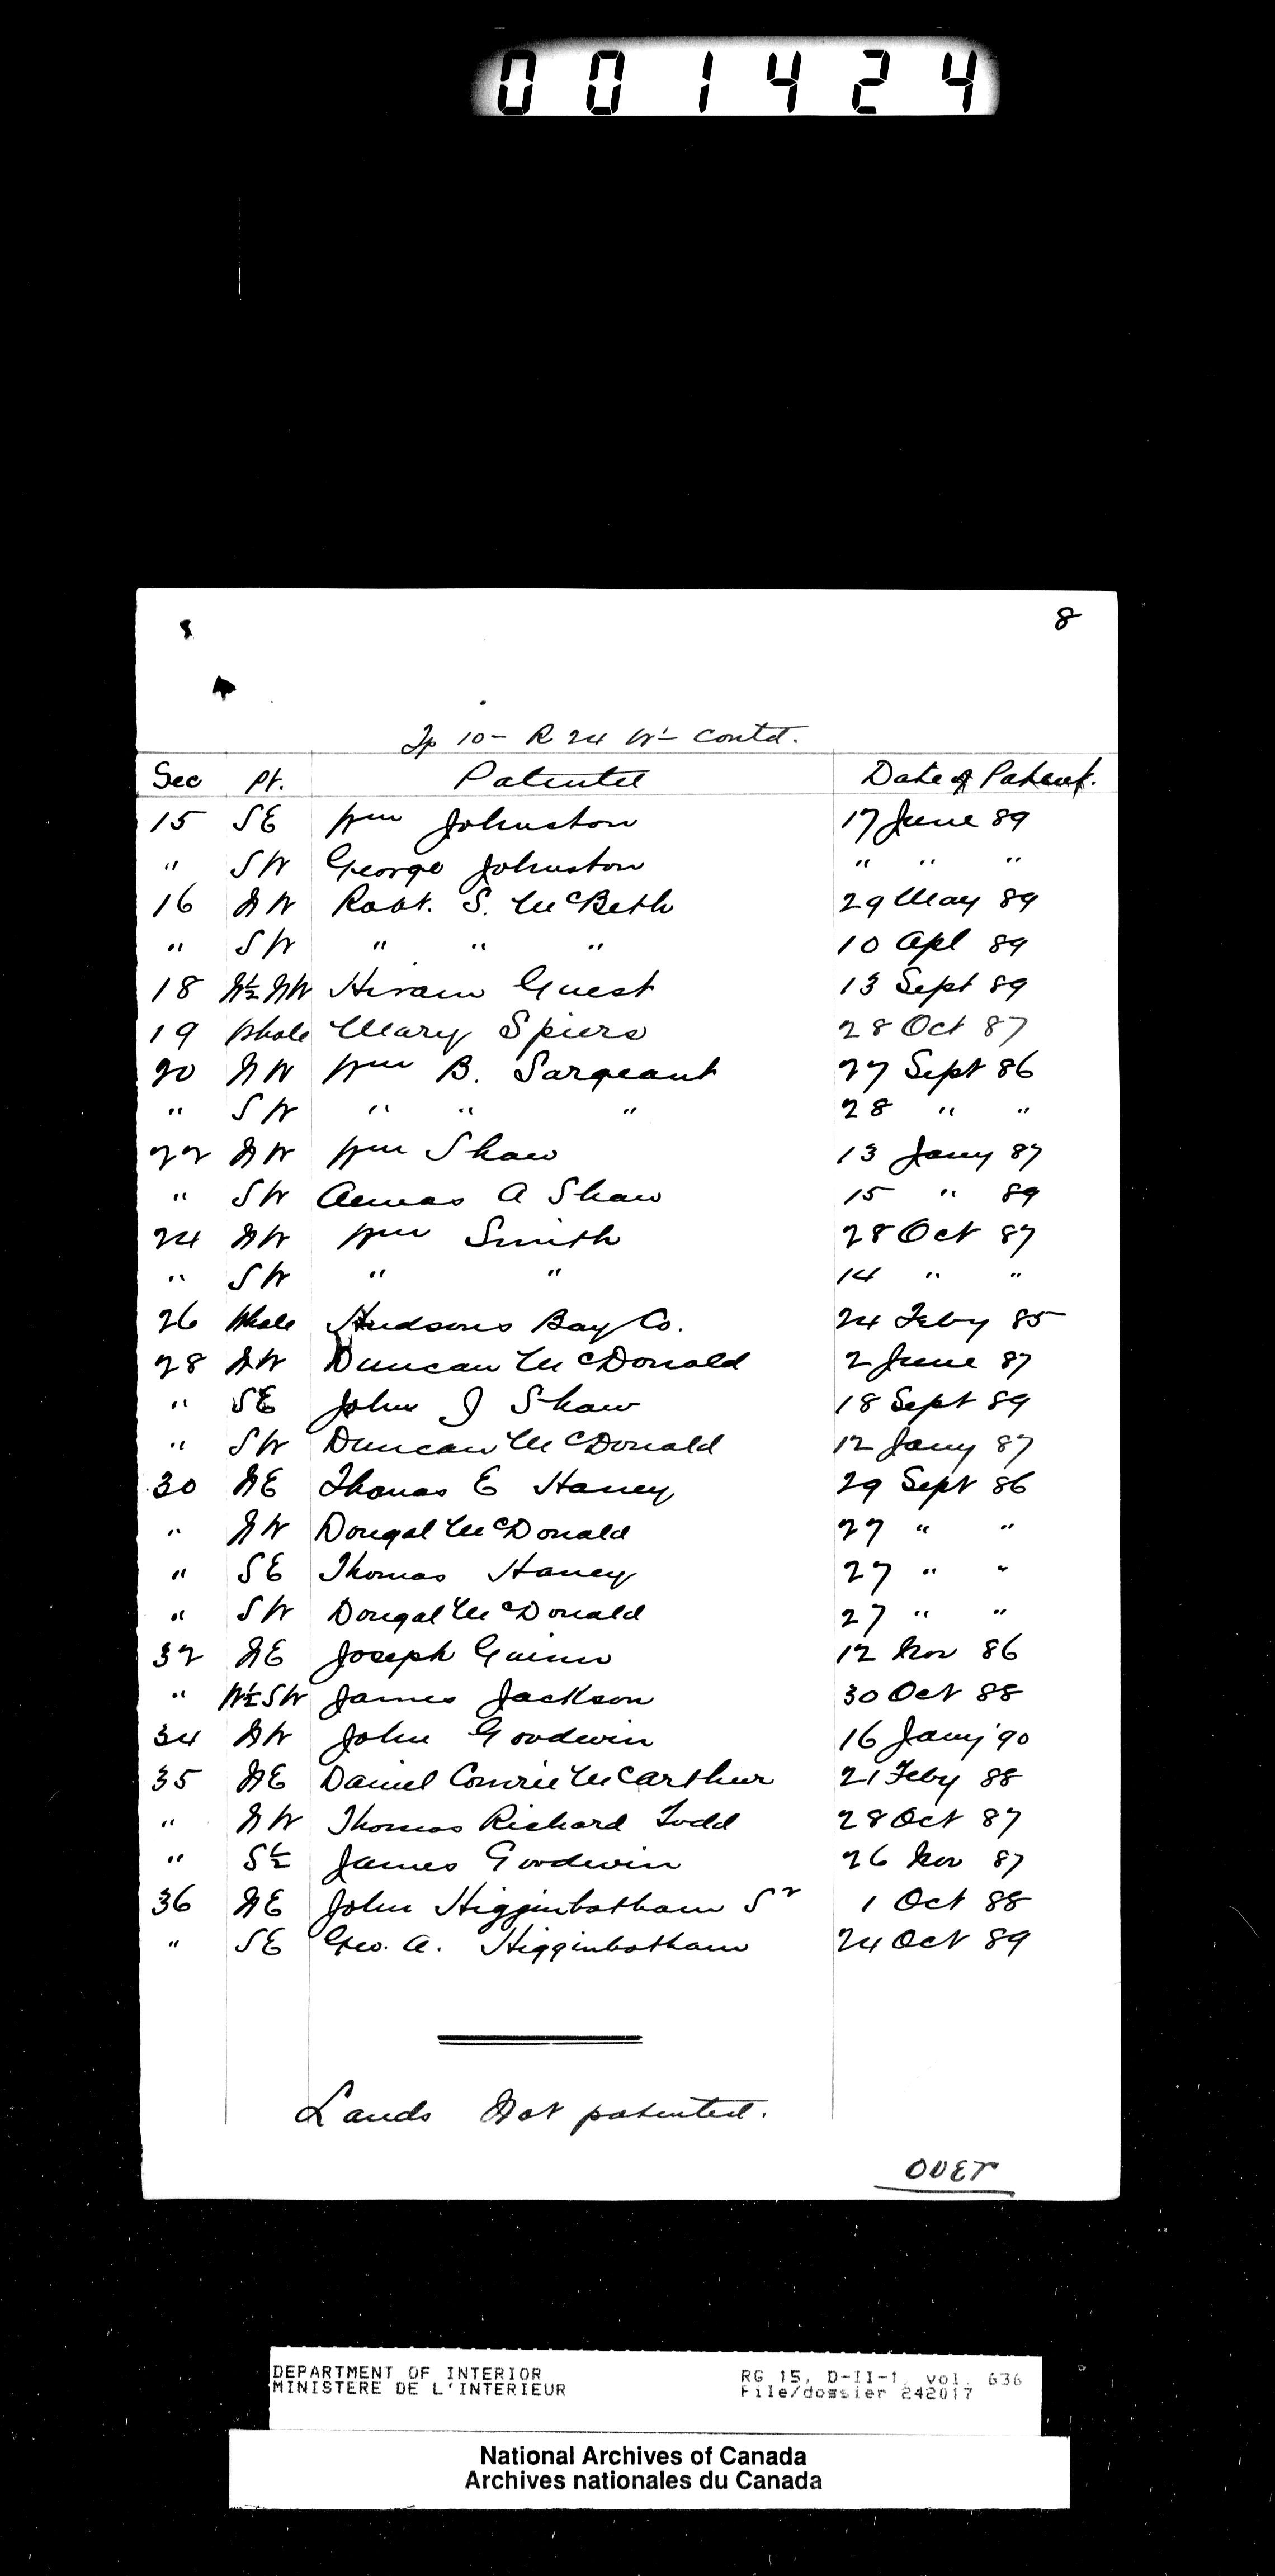 001424
8
Tp 10 - R 24 W1 - contd.
Sec Pt. Patentee Date of Patent.
15 SE Wm Johnston 17 June 89
" SW George Johnston " " "
16 NW Robt. S. McBeth 29 May 89
" SW " " " 10 Apl 89
18 N½ NW Hiram Guest 13 Sept 89
19 Whole Mary Spiers 28 Oct 87
20 NW Wm B. Sargeant 27 Sept 86
" SW " " " 28 " "
22 NW Wm Shaw 13 Jany 87
" SW Aeneas A Shaw 15 " 89
24 NW Wm Smith 28 Oct 87
" SW " " 14 " "
26 Whole Hudsons Bay Co. 24 Feby 85
28 NW Duncan McDonald 2 June 87
" SE John J Shaw 18 Sept 89
" SW Duncan McDonald 12 Jany 87
30 NE Thomas E Haney 29 Sept 86
" NW Dougal McDonald 27 " "
" SE Thomas Haney 27 " "
" SW Dougal McDonald 27 " "
32 NE Joseph Guinn 12 Nov 86
" W½ SW James Jackson 30 Oct 88
34 NW John Goodwin 16 Jany '90
35 NE Daniel Comrie McArthur 21 Feby 88
" NW Thomas Richard Todd 28 Oct 87
" S½ James Goodwin 26 Nov 87
36 NE John Higginbotham Sr 1 Oct 88
" SE Geo. A. Higginbotham 24 Oct 89
Lands Not patented.
OVER
DEPARTMENT OF INTERIOR RG 15, D-II-1, vol. 636
MINISTERE DE L'INTERIEUR File/dossier 242017
National Archives of Canada
Archives nationales du Canada